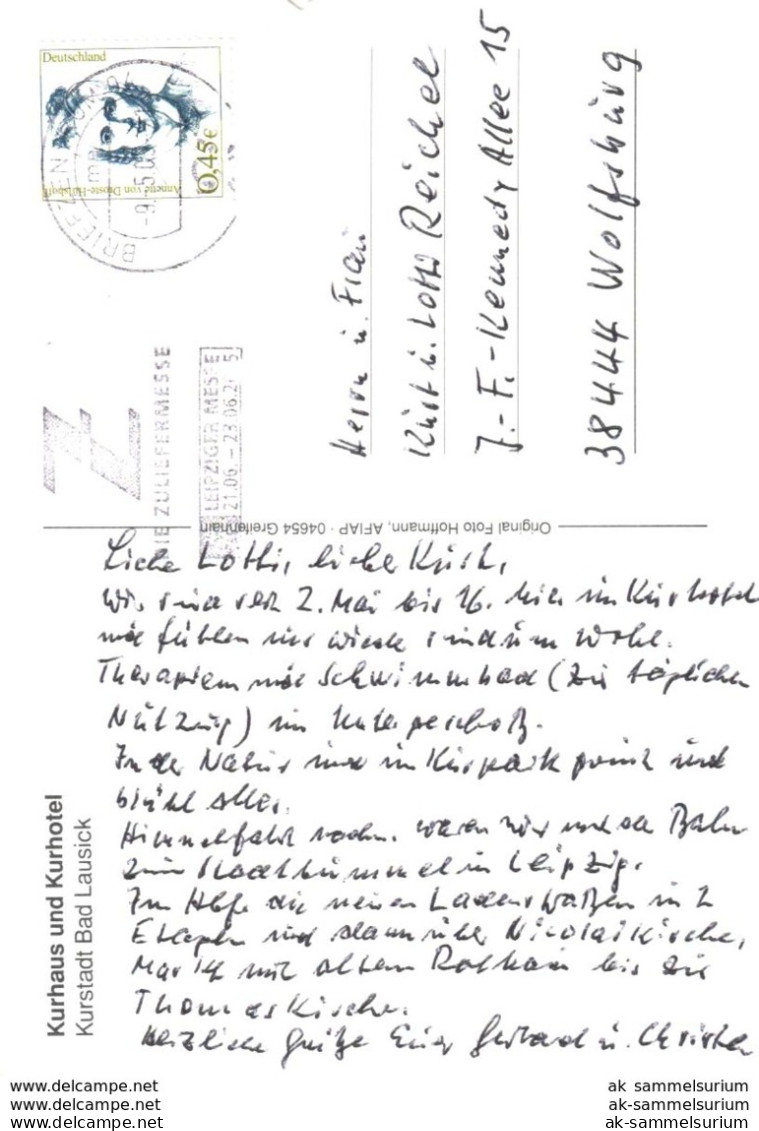 Deutschland
Annette von Droste-Hülshoff
0,45€
BRIEFZEN
-9.-5.0
Z
DIE ZULIEFERMESSE
LEIPZIGER MESSE
21.06. - 23.06.2 5
Herrn u. Frau
Kurt u. Lotte Reichel
J.-F.-Kennedy Allee 15
38444 Wolfsburg
Original Foto Hoffmann, AFIAP · 04654 Greifenhain
Kurhaus und Kurhotel
Kurstadt Bad Lausick
Liebe Lotti, lieber Kurt,
wir sind seit 2. Mai bis 16. hier im Kurhotel
und fühlen uns wieder rundum wohl.
Therapien und Schwimmbad (zur täglichen
Nutzung) im Untergeschoß.
In der Natur und im Kurpark grünt und
blüht alles.
Himmelfahrt nachm. waren wir mit der Bahn
zum Stadtbummel in Leipzig.
Im Hbf. die neuen Ladenstraßen in 2
Etagen und dann über Nicolaikirche,
Markt mit altem Rathaus bis zur
Thomaskirche.
Herzliche Grüße Euer Gerhard u. Christa
ak sammelsurium
ak-sammelsurium
ak-sammelsurium
https://www.delcampe.net
https://www.delcampe.net
https://www.delcampe.net